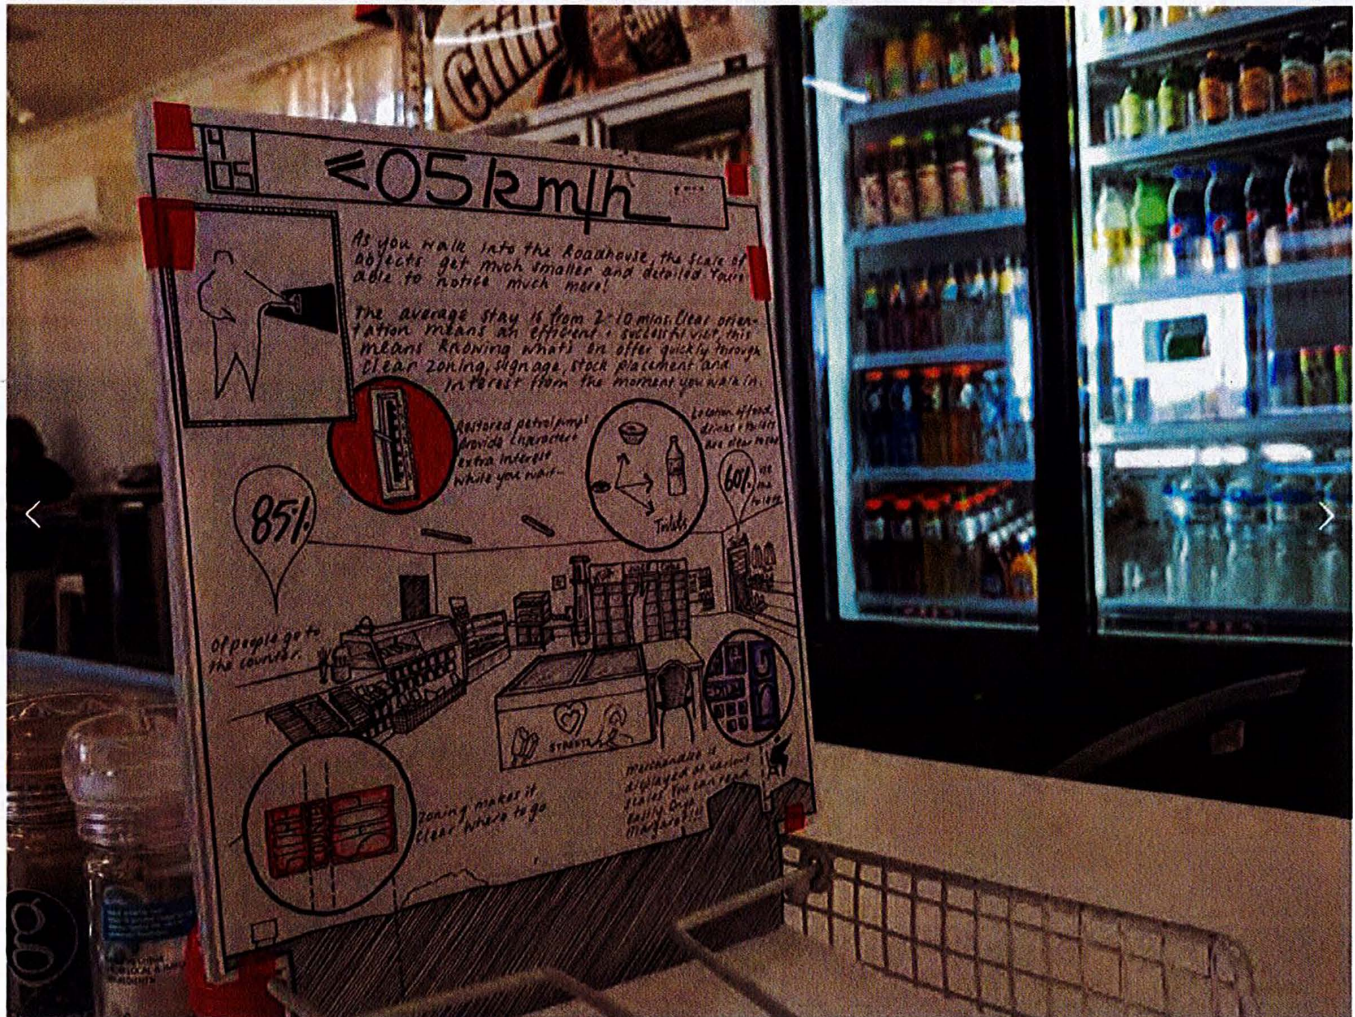 Chill
4
05
<05km/h
As you walk into the Roadhouse, the scale of
objects get much smaller and detailed. You're
able to notice much more!
The average stay is from 2-10 mins. Clear orien-
tation means an efficient + successful visit, this
means knowing what's on offer quickly through
clear zoning, signage, stock placement and
interest from the moment you walk in.
Restored petrol pumps
provide character +
extra interest
while you wait
Location of food,
drinks + toilets
are clear
Toilets
60%
85%
Of people go to
the counter.
STREETS
Zoning makes it
clear where to go
Merchandise is
displayed at various
scales. You can read
easily.
g